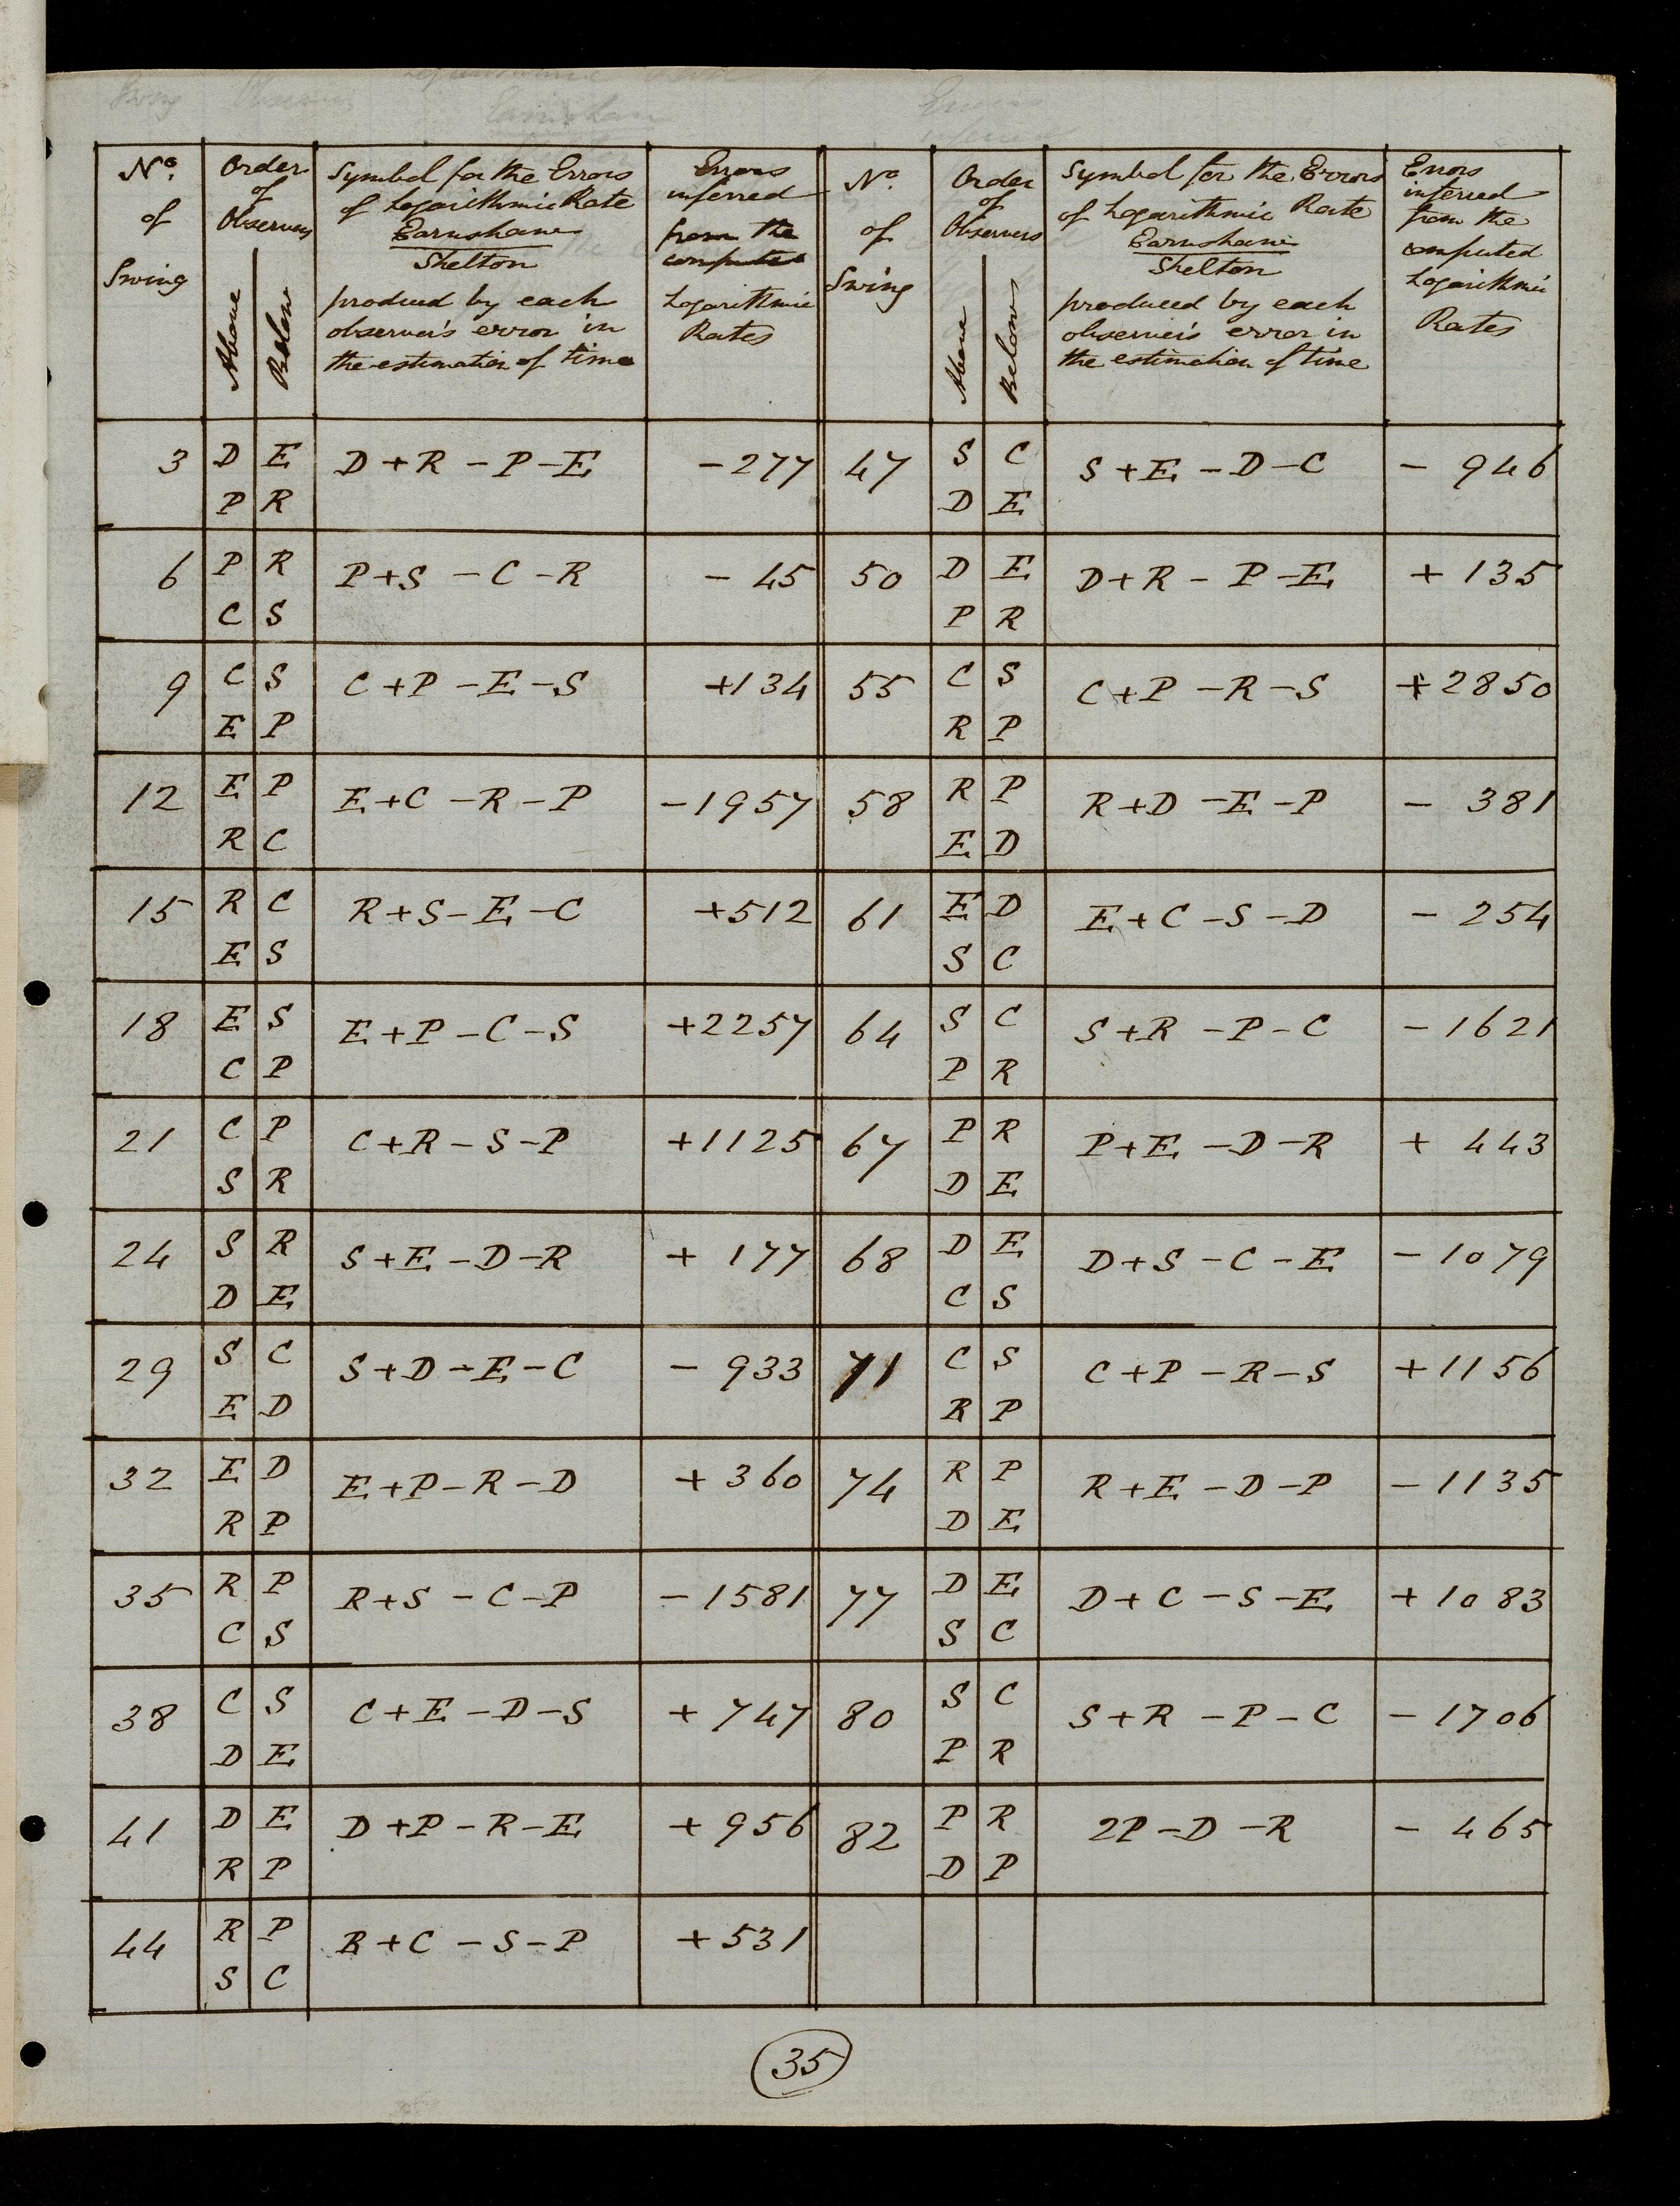 No. of Swing | Order of Observers Above Below | Symbol for the Errors of Logarithmic Rate Earnshaw Shelton produced by each observer's error in the estimation of time | Errors inferred from the computed Logarithmic Rates | No. of Swing | Order of Observers Above Below | Symbol for the Errors of Logarithmic Rate Earnshaw Shelton produced by each observer's error in the estimation of time | Errors inferred from the computed Logarithmic Rates
3 | D E | D+R-P-E | -277 | 47 | S C | S+E-D-C | - 946
P R | D E
6 | P R | P+S-C-R | -45 | 50 | D E | D+R-P-E | + 135
C S | P R
9 | C S | C+P-E-S | +134 | 55 | C S | C+P-R-S | +2850
E P | R P
12 | E P | E+C-R-P | -1957 | 58 | R P | R+D-E-P | - 381
R C | E D
15 | R C | R+S-E-C | +512 | 61 | E D | E+C-S-D | - 254
E S | S C
18 | E S | E+P-C-S | +2257 | 64 | S C | S+R-P-C | -1621
C P | P R
21 | C P | C+R-S-P | +1125 | 67 | P R | P+E-D-R | + 443
S R | D E
24 | S R | S+E-D-R | + 177 | 68 | D E | D+S-C-E | -1079
D E | C S
29 | S C | S+D-E-C | - 933 | 71 | C S | C+P-R-S | +1156
E D | R P
32 | E D | E+P-R-D | + 360 | 74 | R P | R+E-D-P | -1135
R P | D E
35 | R P | R+S-C-P | -1581 | 77 | D E | D+C-S-E | +1083
C S | S C
38 | C S | C+E-D-S | + 747 | 80 | S C | S+R-P-C | -1706
D E | P R
41 | D E | D+P-R-E | + 956 | 82 | P R | 2P-D-R | - 465
R P | D P
44 | R P | R+C-S-P | +531
S C
35